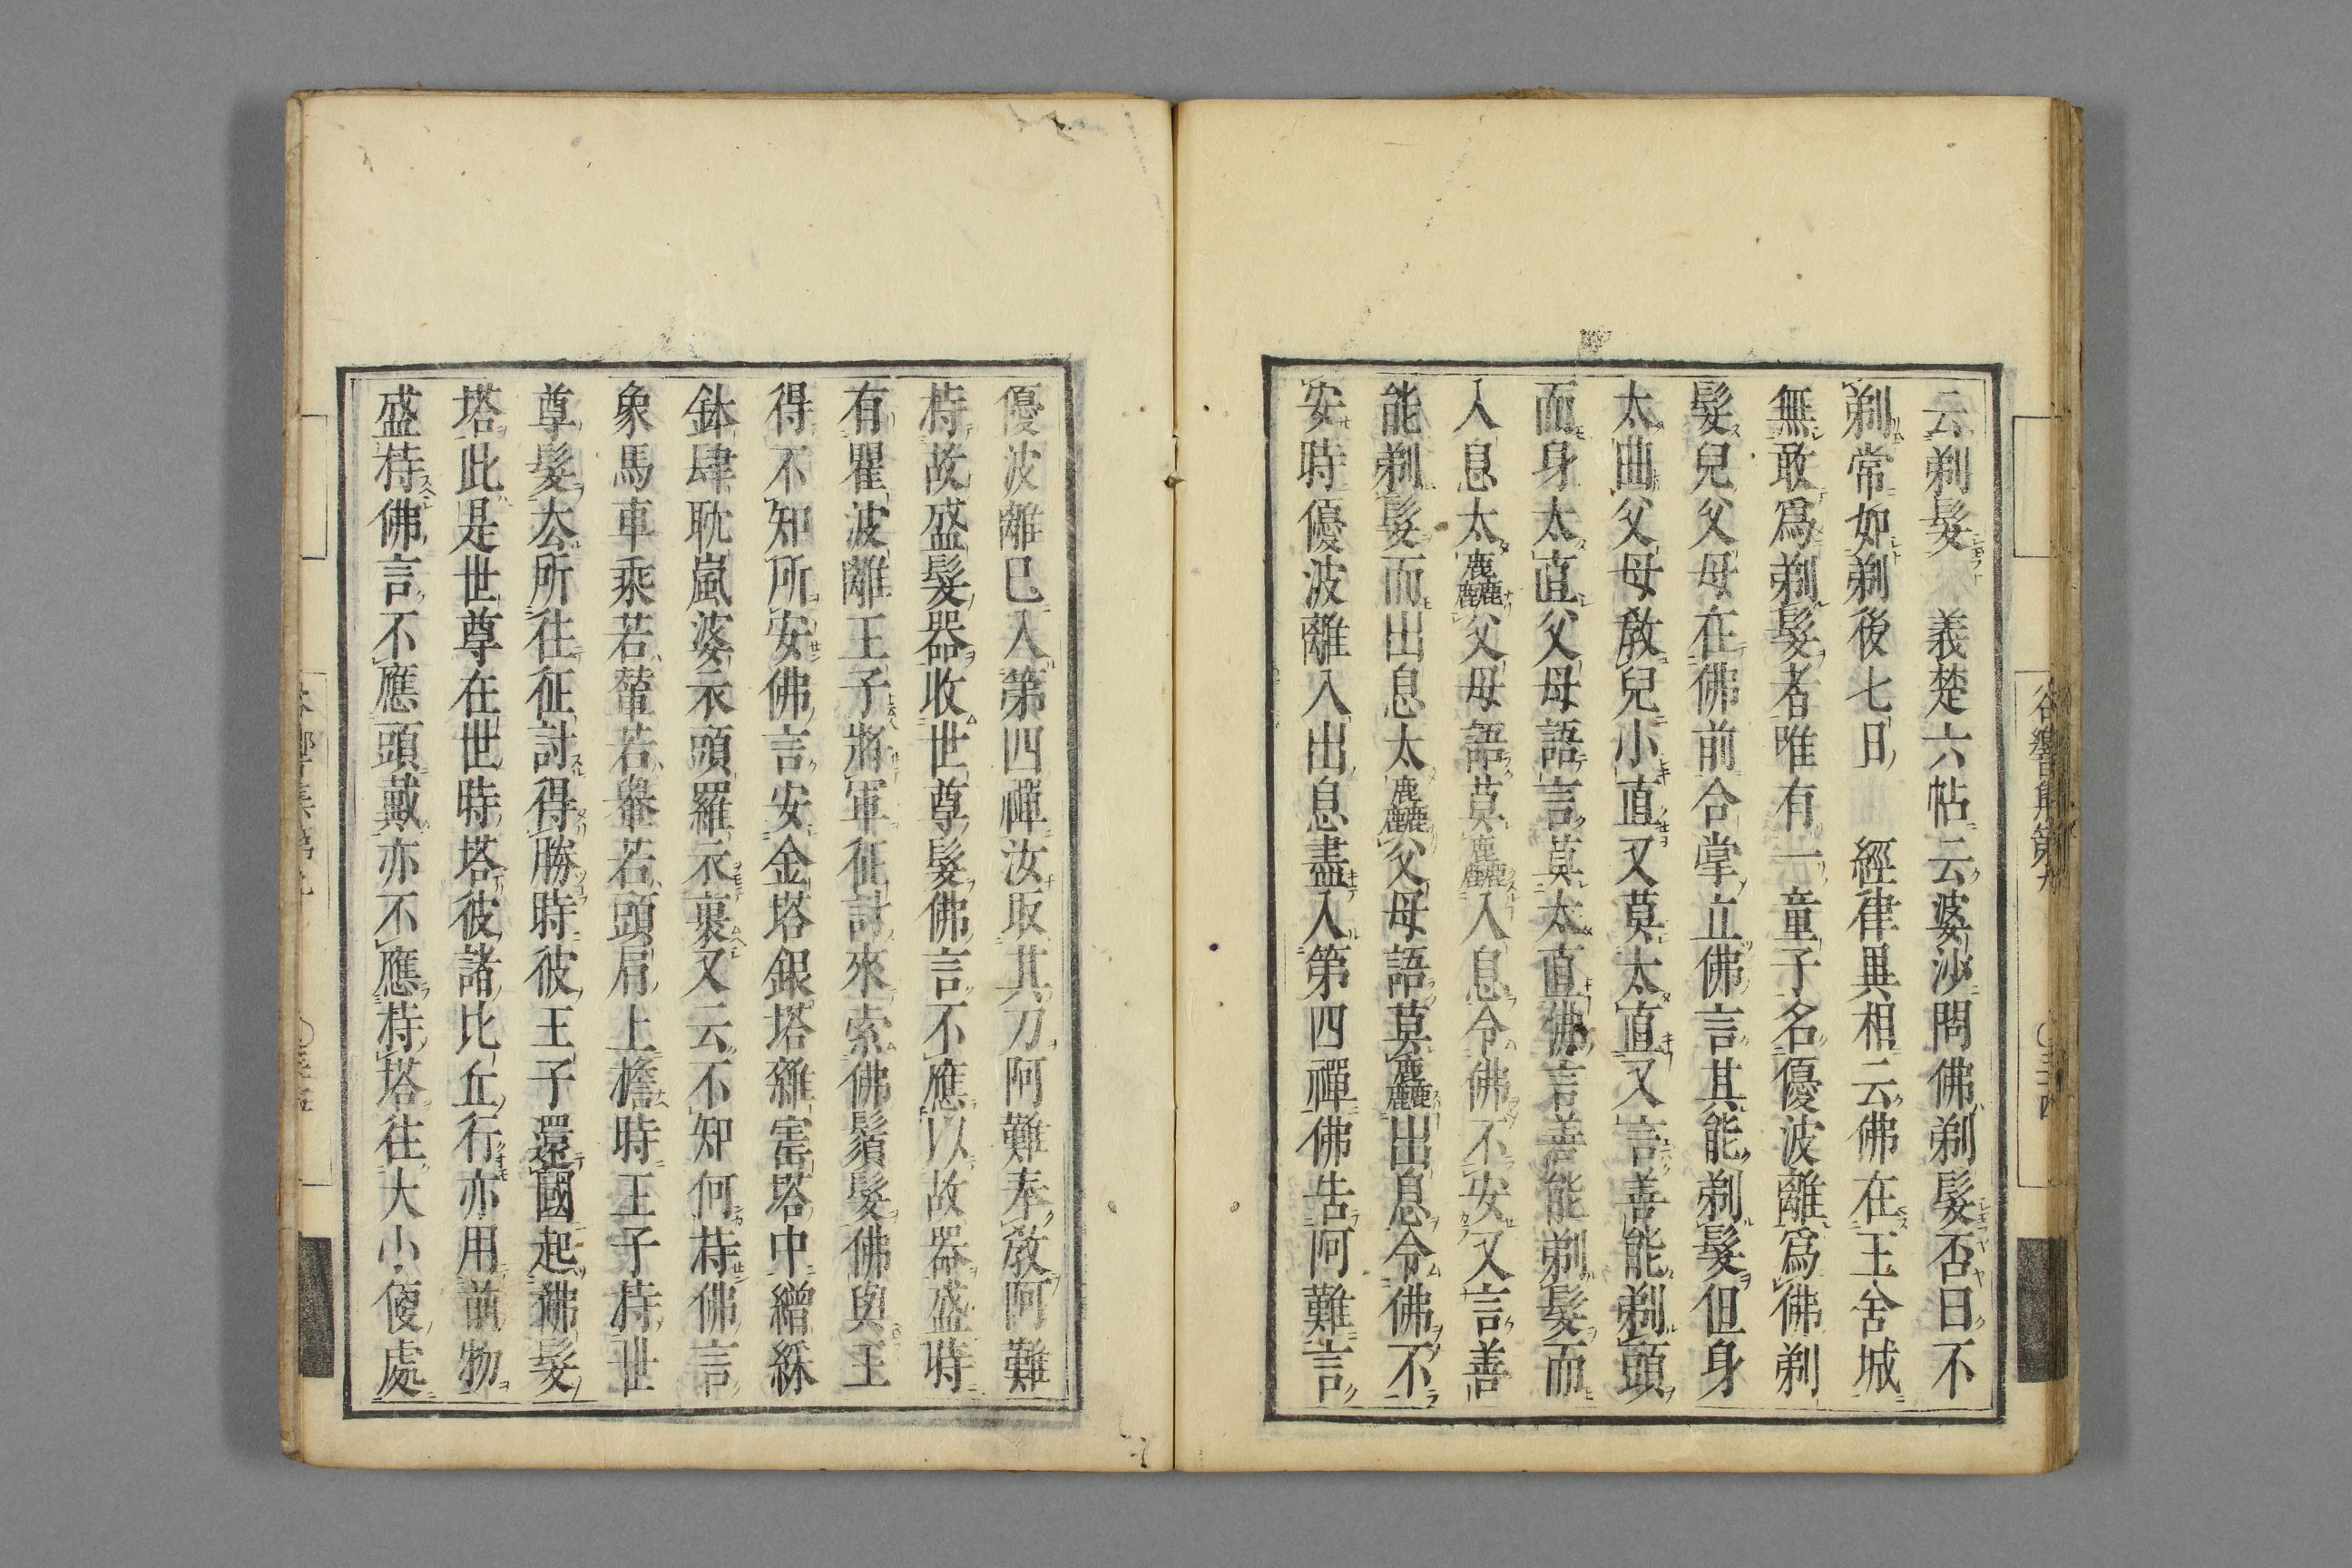 云剃髮　義楚六帖云婆沙問佛剃髮否曰不
剃常如剃後七日　經律異相云佛在王舍城
無敢爲剃髮者唯有一童子名優波離爲佛剃
髮兒父母在佛前合掌立佛言其能剃髮但身
太曲父母教兒小直又莫太直又言善能剃頭
而身太直父母語言莫太直佛言善能剃髮而
入息太麤父母語莫麤入息令佛不安又言善
能剃髮而出息太麤父母語莫麤出息令佛不
安時優波離入出息盡入第四禪佛告阿難言
優波離已入第四禪汝取其刀阿難奉教阿難
持故盛髮器收世尊髮佛言不應以故器盛時
有瞿波離王子將軍征討來索佛鬚髮佛與王
得不知所安佛言安金塔銀塔雜寶塔中繒綵
鉢肆耽嵐婆衣頭羅衣裹又云不知何持佛言
象馬車乘若輦若轝若頭肩上擔時王子持世
尊髮去所往征討得勝時彼王子還國起佛髮
塔此是世尊在世時塔彼諸比丘行亦用前物
盛持佛言不應頭戴亦不應持塔往大小便處
谷響集第九
○三十四